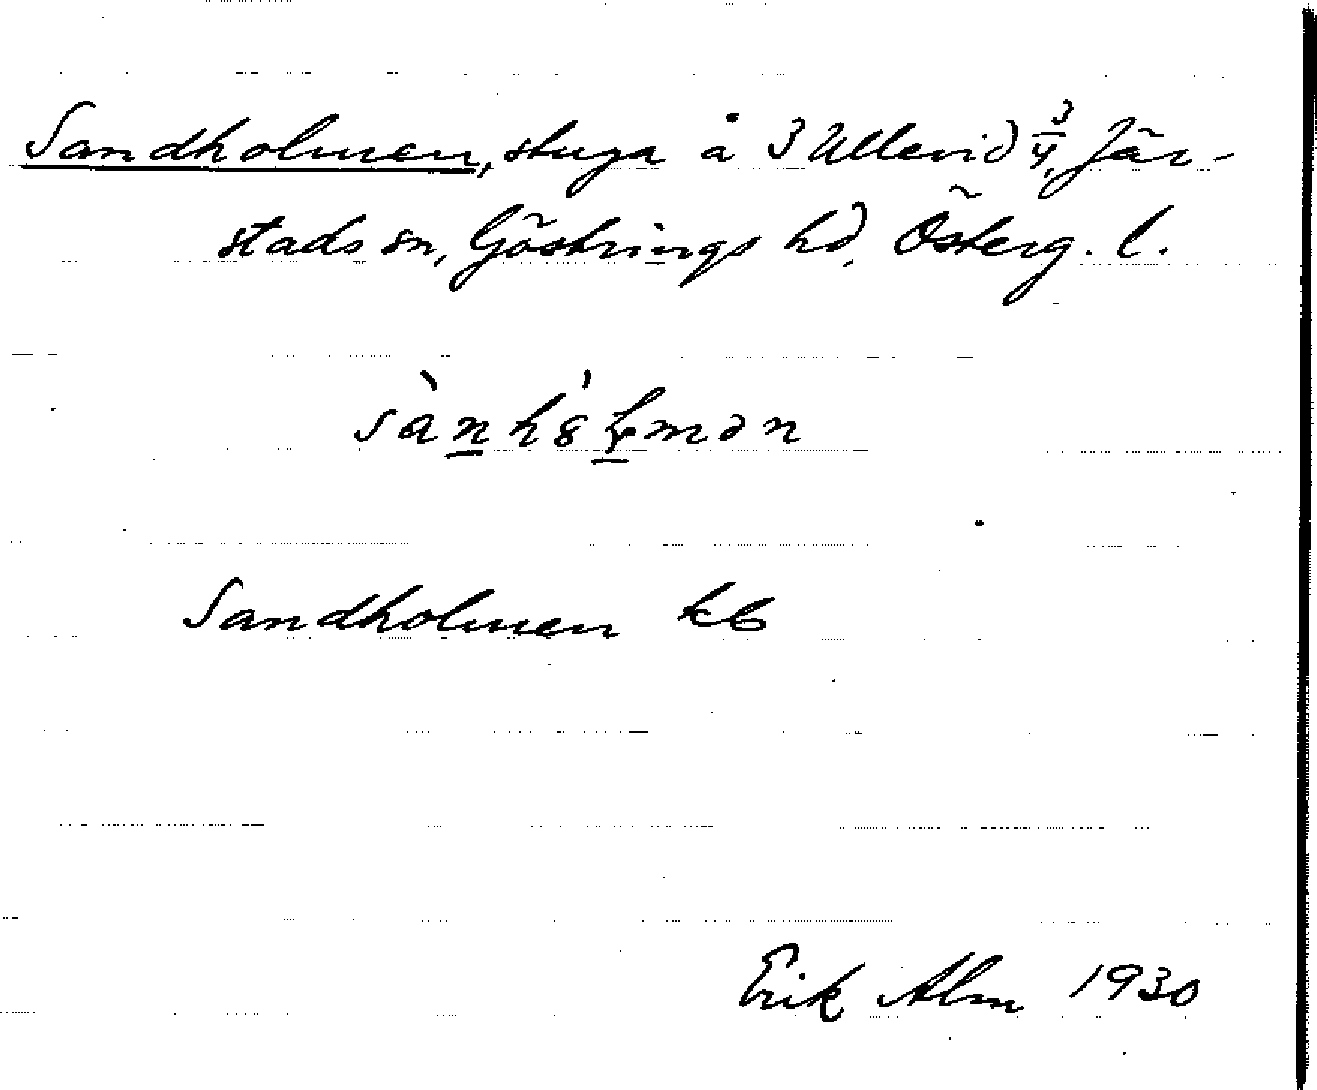 Sandholmen, stuga å 3 Ullevid 3/4, Jär-
stads sn, Göstrings hd, Österg. l.
sànhȣ́ɽmən
Sandholmen kb
Erik Alm 1930